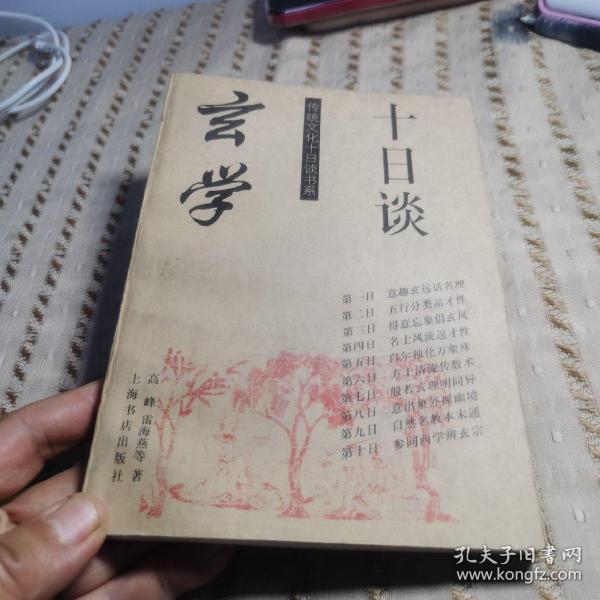 玄学
传统文化十日谈书系
十日谈
第一日 意趣玄远话名理
第二日 五行分类品才性
第三日 得意忘象倡玄风
第四日 名士风流逞才性
第五日 自尔独化万象殊
第六日 方士清流传数术
第七日 般若玄理明同异
第八日 意出象外探幽境
第九日 自然名教本末通
第十日 参同西学辨玄宗
高峰 雷海燕等 著
上海书店出版社
孔夫子旧书网
www.kongfz.com